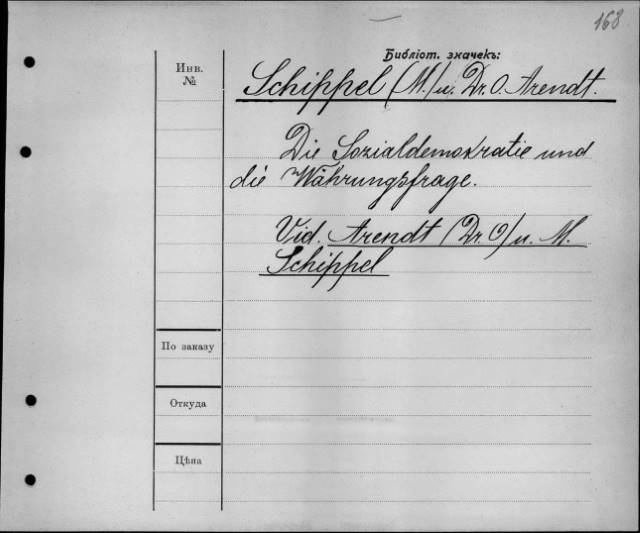 168
Библіот. значекъ:
Инв.
№
Schippel (M.) u. Dr. O. Arendt.
Die Sozialdemokratie und
die Währungsfrage.
Vid. Arendt (Dr. O) u. M.
Schippel
По заказу
Откуда
Цѣна